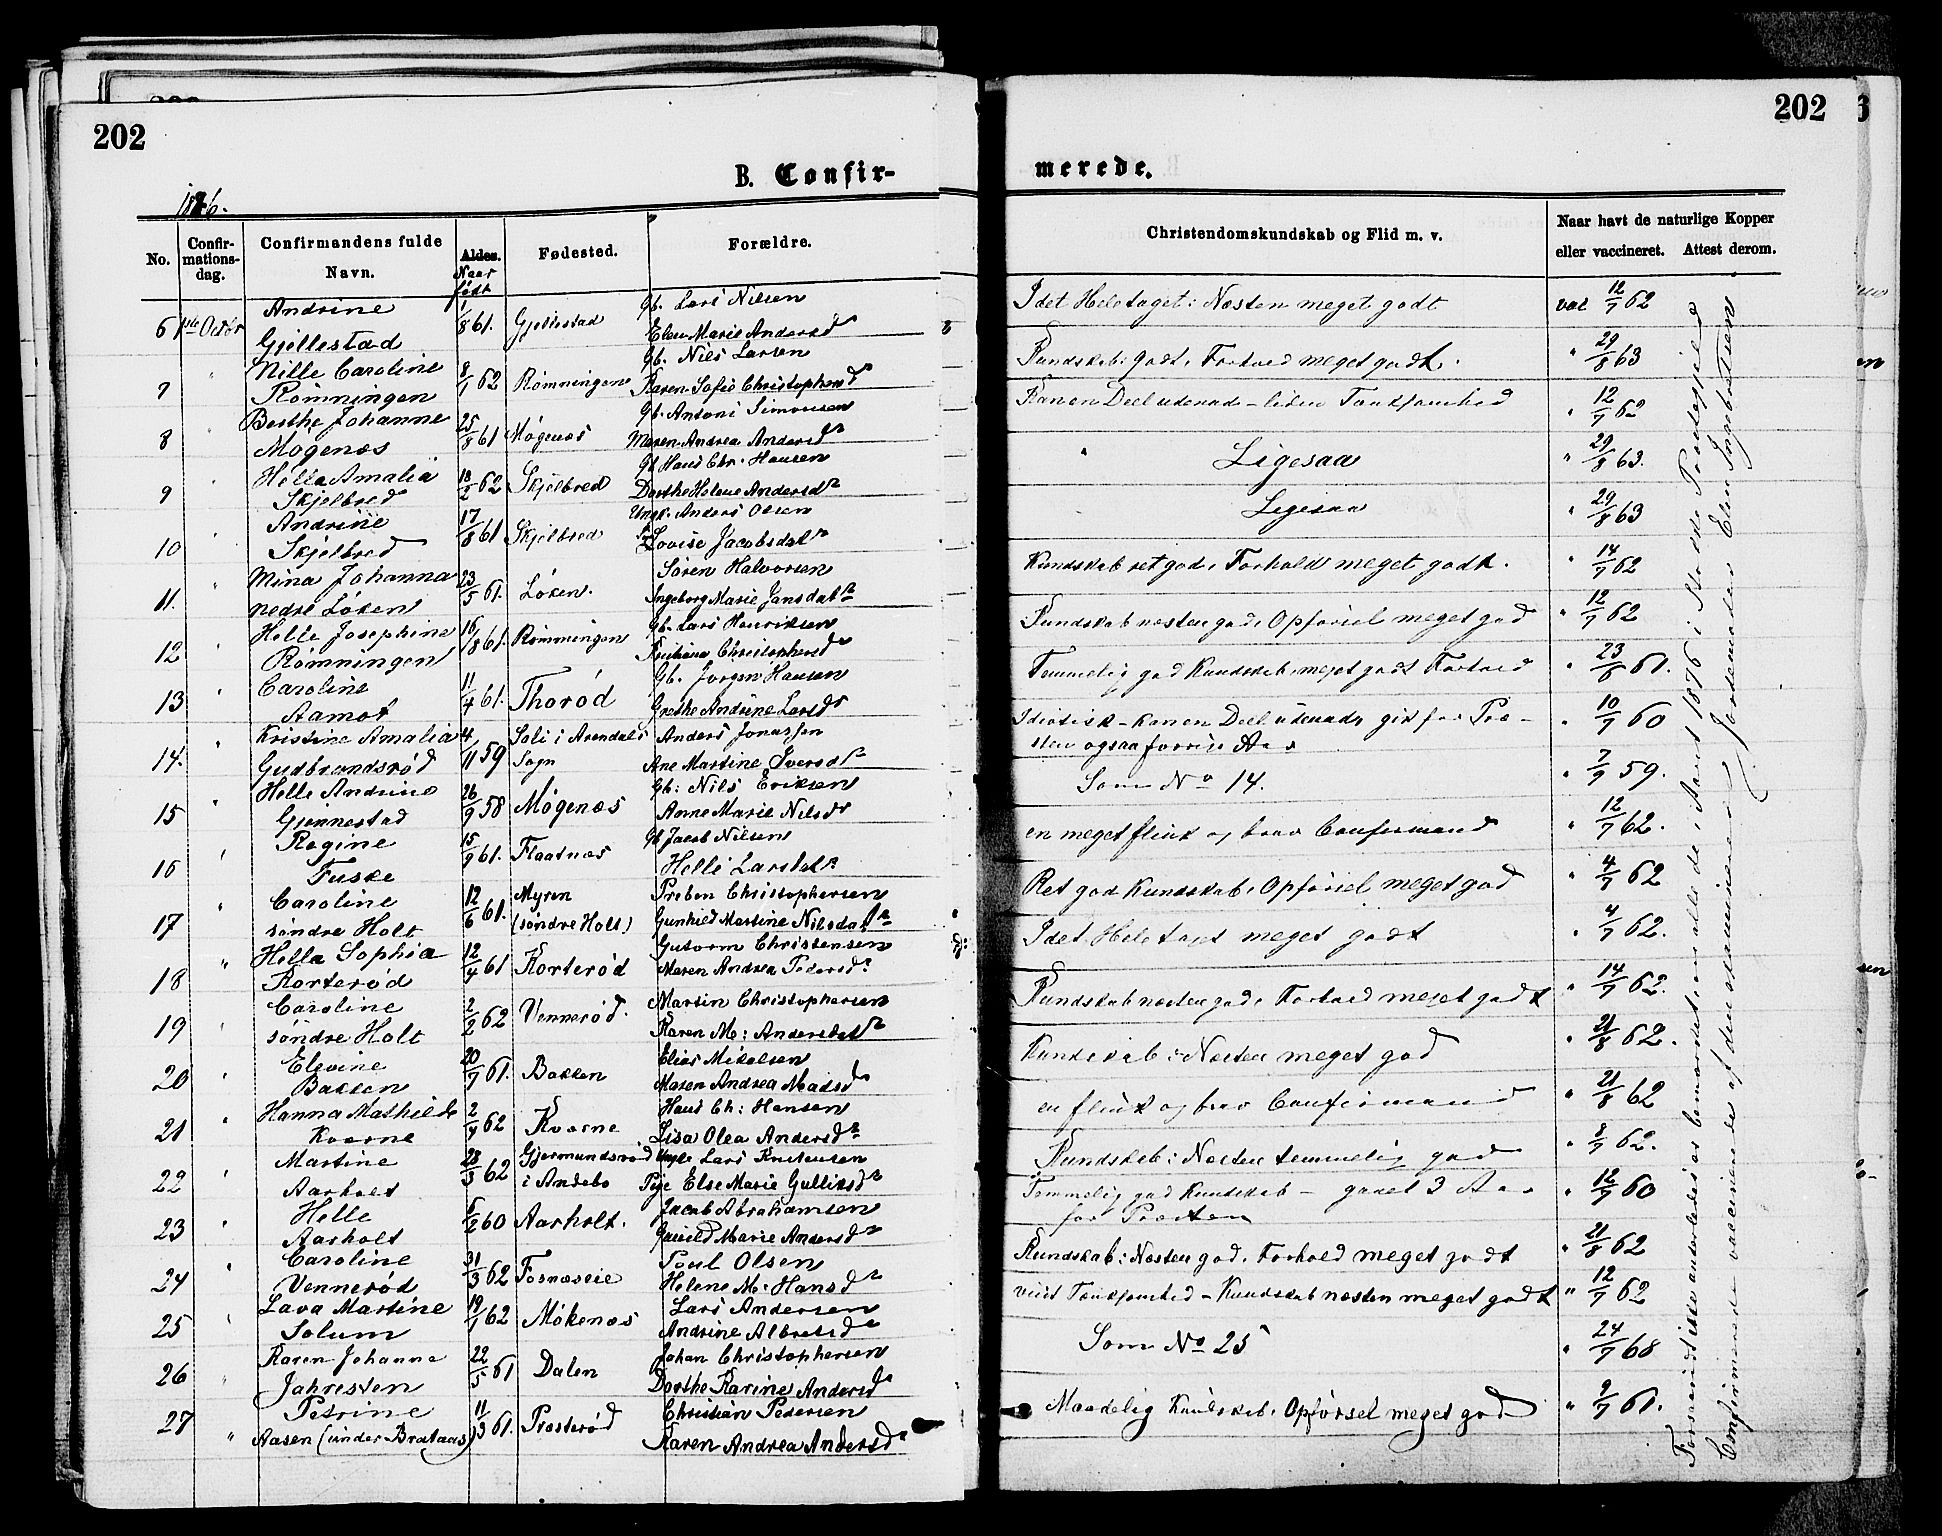 202
B. Confir-
1876.
No.
Confir-
mations-
dag.
Confirmandens fulde
Navn.
Alder.
Naar
født
Fødested.
Forældre.
6 1ste Octbr Andrine 1/8 61. Gjellestad Gb. Lars Nilsen
Gjellestad Elen Marie Andersdr
7 " Nille Caroline 8/1 62 Rømningen Gb. Nils Larsen
Rømningen Karen Sofie Christophersdr
8 " Berthe Johanne 25/8 61 Møgenæs Gb. Antoni Simonsen
Møgenæs Maren Andrea Andersdr
9 " Helle Amalia 18/2 62 Skjelbred Gb Hans Chr. Hansen
Skjelbred Dorthe Helene Andersdr
10 Andrine 17/8 61 Skjelbred Ungk. Anders Olsen
Skjelbred Lovise Jacobsdatr
11. " Mina Johanna 23/5 61. Løken. Søren Halvorsen
nedre Løken Ingeborg Marie Jansdatr
12 " Helle Josephine 16/8 61. Rømningen Gb. Lars Henriksen
Rømningen Kristiane Christophersdr
13 " Caroline 11/4 61. Thorød Gb. Jørgen Hansen
Aamot Grethe Andrine Larsdr
14. " Kristine Amalia 4/11 59 Soli i Arendals Anders Jonassen
Gudbrandsrød Sogn Ane Martine Iversdr
15 " Helle Andrine 26/9 58 Møgenæs Gb: Nils Eriksen
Gjennestad Anne Marie Nilsdr
16 " Regine 15/9 61. Flaatnæs Gb Jacob Nilsen
Fuske Helle Larsdatr
17 " Caroline 12/6 61. Myren Preben Christophersen
søndre Holt (søndre Holt) Gunhild Martine Nilsdatr
18 " Hella Sophia 12/4 61 Korterød Gutorm Christensen
Korterød Maren Andrea Pedersdr
19 " Caroline 2/2 62 Vennerød Martin Christophersen
søndre Holt Karen M: Andersdatr
20 " Elevine 20/7 61. Bakken Elias Mikelsen
Bakken Maren Andrea Madsdr
21 " Hanna Mathilde 2/4 62 Kværne Hans Ch: Hansen
Kværne Lisa Olea Andersdr
22 " Martine 28/3 62 Gjermundsrød Ungk Lars Knutsen
Aarholt i Andebo Pige Else Marie Gulliksdr
23 " Helle 6/2 60 Aarholt. Jacob Abrahamsen
Aarholt Gunild Marie Andersdr
24 " Caroline 31/3 62 Fosnæseie Poul Olsen
Vennerød Helene M. Hansdr
25 " Lava Martine 19/1 62 Møkenæs Lars Andersen
Solum Andrine Albretsdr
26 " Karen Johanne 22/5 61 Dalen Johan Christophersen
Jahresten Dorthe Karine Andersdr
27 " Petrine 11/3 61. Præsterød Christian Pedersen
Aasen (under Brataas) Karen Andrea Andersdr
202
merede.
Christendomskundskab og Flid m. v.
Naar havt de naturlige Kopper
eller vaccineret. Attest derom.
I det Heletaget: Næsten meget godt vac 12/7 62
Kundskab: godt, Forhold meget godt. " 29/8 63
Kan en Deel udenad – liden Tænksomhed " 12/7 62
" Ligesaa " 29/8 63.
Ligesaa " 29/8 63
Kundskab ret god, Forhold meget godt. " 14/7 62
Kundskab næsten god, Opførsel meget god " 12/7 62
Temmelig god Kundskab, meget godt Forhold " 23/6 61.
Idiotisk – kan en Deel udenad, gik for Præ- " 10/7 60
sten ogsaa forrige Aar
Som No 14. " 7/9 59.
en meget flink og brav Confirmand " 12/7 62.
Ret god Kundskab, Opførsel meget god " 4/7 62
I det Heletaget meget godt " 4/7 62.
Kundskab næsten god, Forhold meget godt " 14/7 62.
Kundskab: Næsten meget god " 21/8 62.
en flink og brav Confirmand " 21/8 62
Kundskab: Næsten temmelig god " 8/7 62.
Temmelig god Kundskab – gaaet 3 Aar " 12/7 60
for Præsten
Kundskab: Næsten god, Forhold meget godt " 21/8 62
viist Tænksomhed – Kundskab næsten meget godt " 12/7 62
Som No 25 " 24/7 68
Maadelig Kundskab, Opførsel meget god " 9/7 61.
Forsaavidt ikke anderledes er bemærket, ere alle de i Aaret 1876 i Stokke Præstegjeld
Confirmerede vaccinerede af den examinerede Jordemoder Elen Ingebretsen